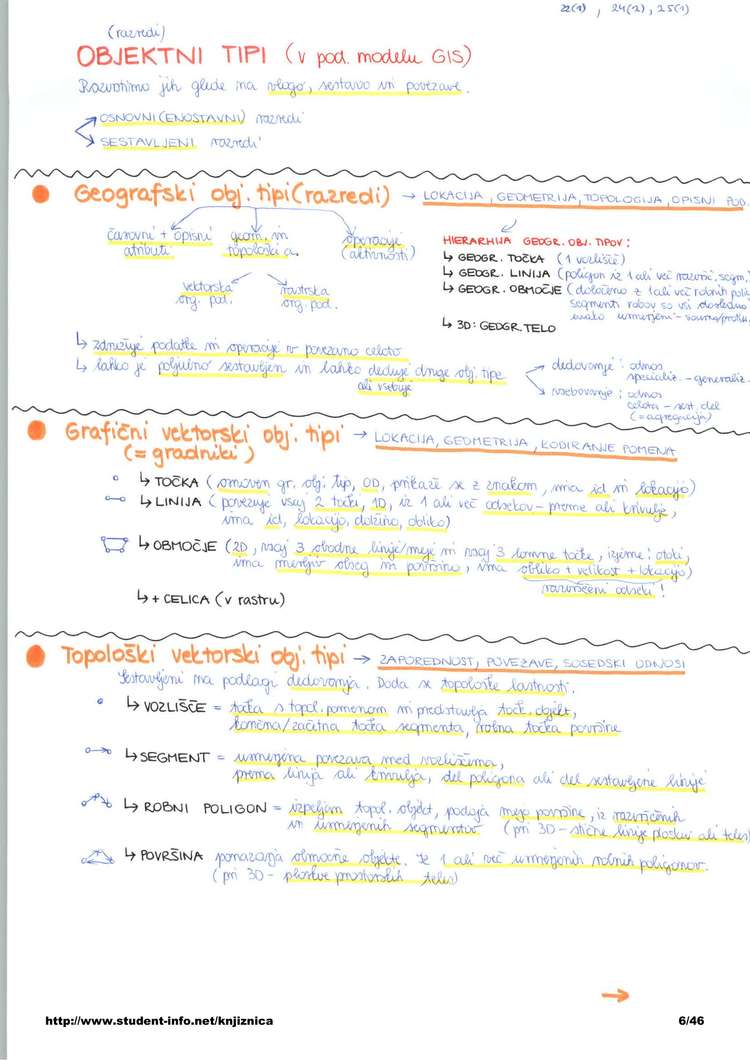 22(1), 24(2), 25(1)
(razredi)
OBJEKTNI TIPI (v pod. modelu GIS)
Razvrstimo jih glede na vlogo, sestavo in povezave.
OSNOVNI (ENOSTAVNI) razredi
SESTAVLJENI razredi
Geografski obj. tipi (razredi) → LOKACIJA, GEOMETRIJA, TOPOLOGIJA, OPISNI POD.
časovni + opisni atributi
geom. in topološki a.
operacije (aktivnosti)
vektorska org. pod.
rastrska org. pod.
HIERARHIJA GEOGR. OBJ. TIPOV:
↳ GEOGR. TOČKA (1 vozlišče)
↳ GEOGR. LINIJA (poligon iz 1 ali več razvršč. segm.
↳ GEOGR. OBMOČJE (določeno z 1 ali več robnih poli
segmenti robov so vsi dosledno
enako usmerjeni -
↳ 3D: GEOGR. TELO
↳ združuje podatke in operacije v povezano celoto
↳ lahko je poljubno sestavljen in lahko deduje druge obj. tipe
ali vsebuje
dedovanje: odnos
specializ. - generaliz.
vsebovanje: odnos
celota - sest. del
(= agregacija)
Grafični vektorski obj. tipi → LOKACIJA, GEOMETRIJA, KODIRANJE POMENA
(= gradniki)
↳ TOČKA (osnoven gr. obj. tip, 0D, prikaže se z znakom, ima id in lokacijo)
↳ LINIJA (povezuje vsaj 2 točki, 1D, iz 1 ali več odsekov - preme ali krivulje,
ima id, lokacijo, dolžino, obliko)
↳ OBMOČJE (2D, vsaj 3 obodne linije/meje in vsaj 3 lomne točke, izjeme: otoki,
ima merljiv obseg in površino, ima obliko + velikost + lokacijo)
razvrščeni odseki!
↳ + CELICA (v rastru)
Topološki vektorski obj. tipi → ZAPOREDNOST, POVEZAVE, SOSEDSKI ODNOSI
Sestavljeni na podlagi dedovanja. Doda se topološke lastnosti.
↳ VOZLIŠČE = točka s topol. pomenom in predstavlja točk. objekt,
končna/začetna točka segmenta, robna točka površine
↳ SEGMENT = usmerjena povezava med vozliščema,
prema linija ali krivulja, del poligona ali del sestavljene linije
↳ ROBNI POLIGON = izpeljan topol. objekt, podaja mejo površine, iz razvrščenih
in usmerjenih segmentov (pri 3D - stične linije ploskev ali teles)
↳ POVRŠINA ponazarja območne objekte. Iz 1 ali več usmerjenih robnih poligonov.
(pri 3D - ploskve prostorskih teles)
→
http://www.student-info.net/knjiznica
6/46